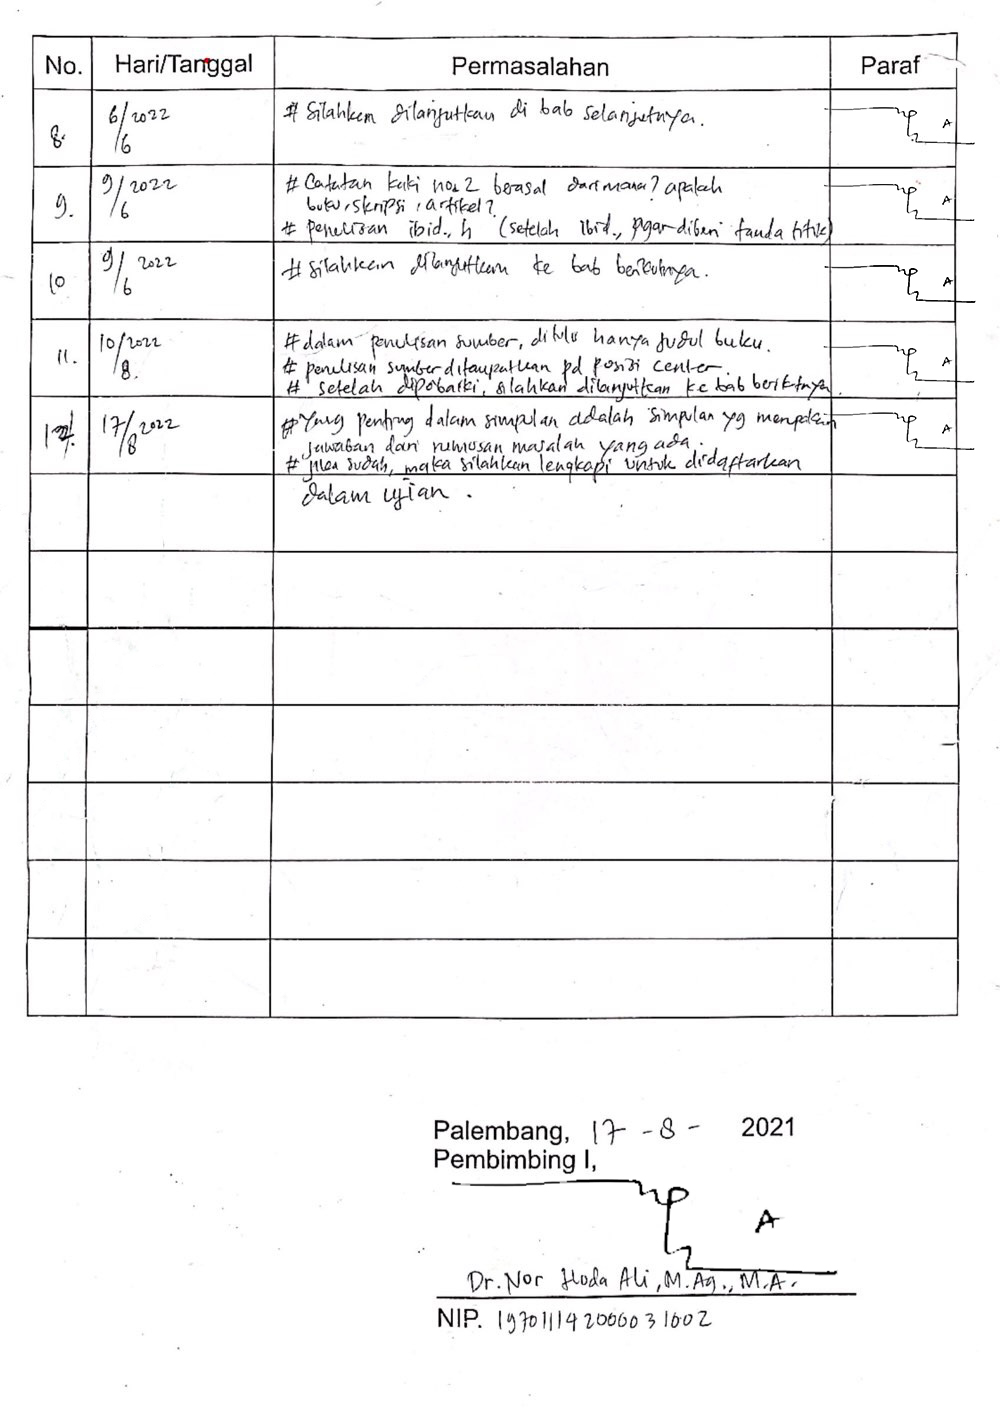 No. Hari/Tanggal Permasalahan Paraf
8. 6/6 2022 # Silahkan dilanjutkan di bab selanjutnya. A
9. 9/6 2022 # Catatan kaki no. 2 berasal dari mana? apakah
buku, skripsi, artikel?
# penulisan ibid., h (setelah Ibid., agar diberi tanda titik) A
10 9/6 2022 # Silahkan dilanjutkan ke bab berikutnya. A
11. 10/8 2022 # dalam penulisan sumber, ditulis hanya judul buku.
# penulisan sumber ditempatkan pd posisi center.
# setelah diperbaiki, silahkan dilanjutkan ke bab berikutnya A
17/8 2022 # Yang penting dalam simpulan adalah simpulan yg merupakan
jawaban dari rumusan masalah yang ada. A
# jika sudah, maka silahkan lengkapi untuk didaftarkan
dalam ujian.
Palembang, 17 - 8 - 2021
Pembimbing I,
A
Dr. Nor Huda Ali, M.Ag., M.A.
NIP. 197011142000031002